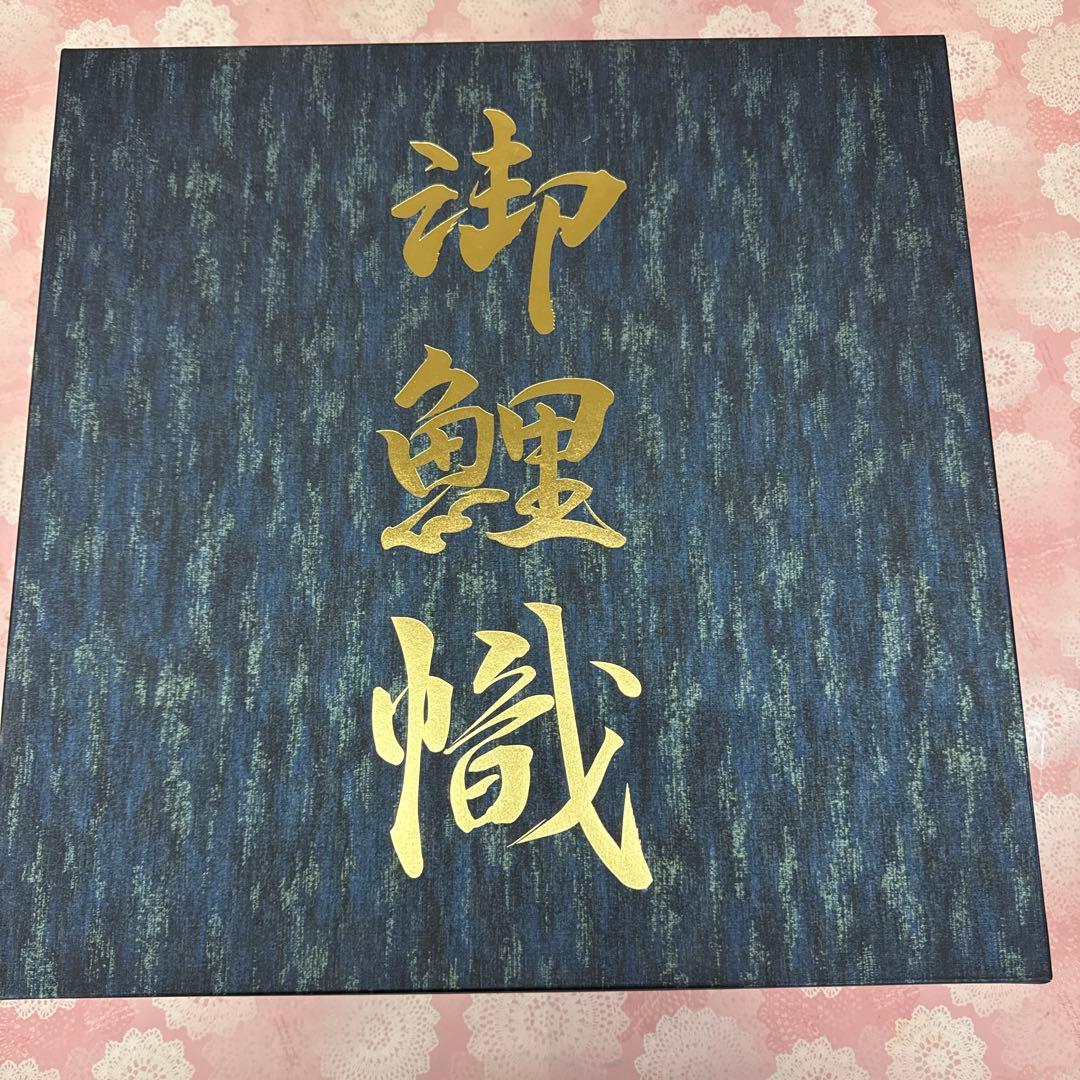 御鯉幟